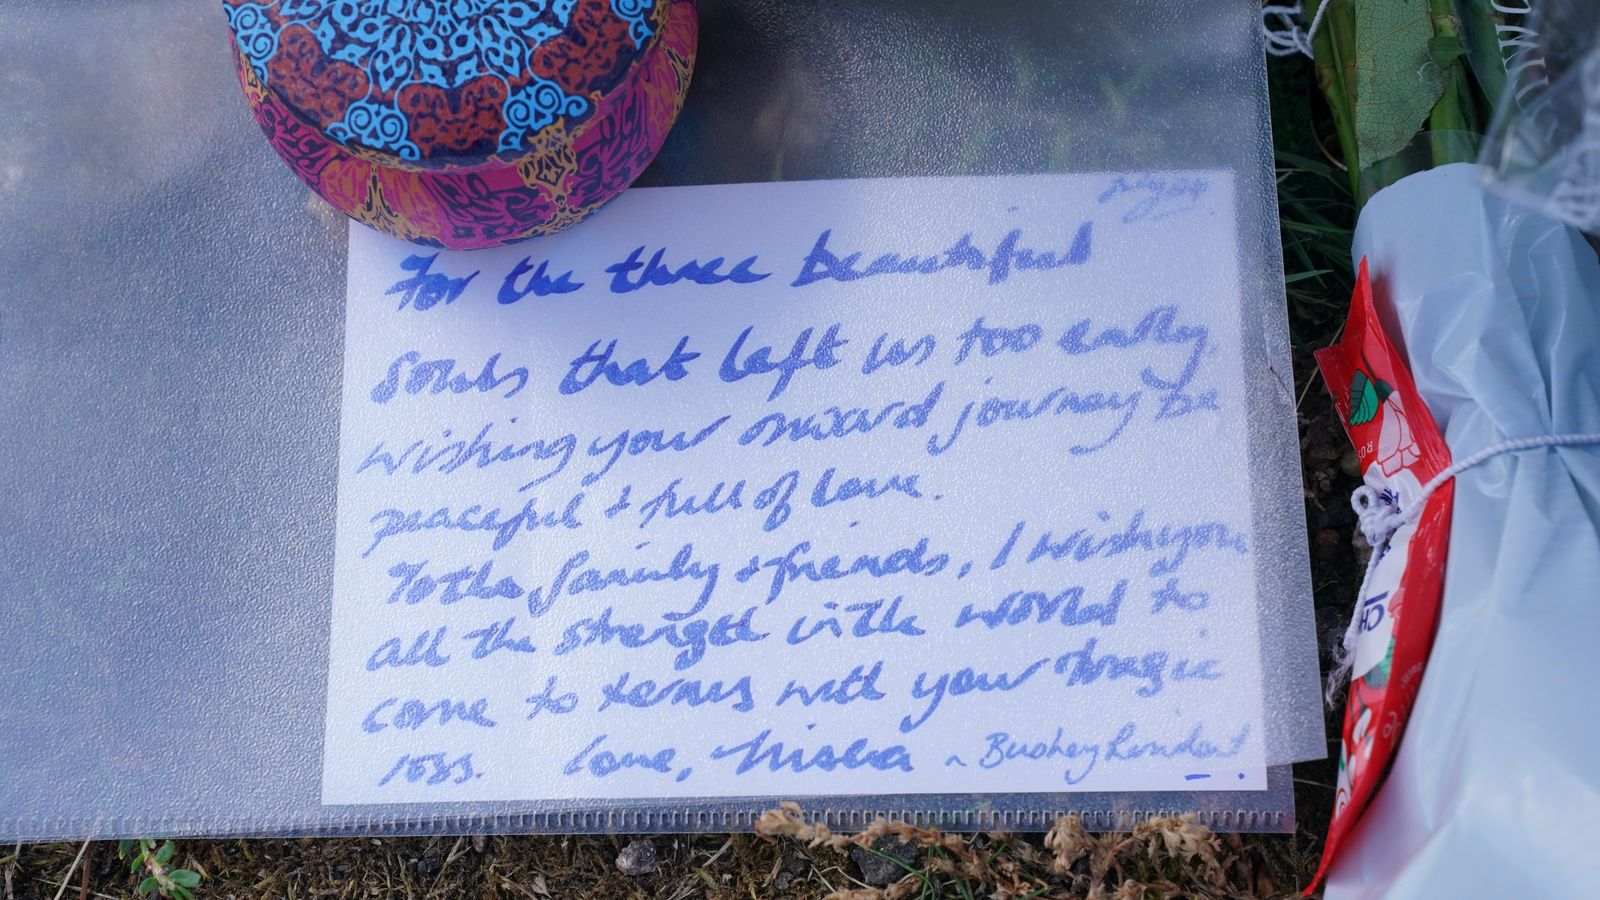 For the three beautiful
Souls that left us too early.
wishing your onward journey be
peaceful + full of love.
To the family + friends, I wish you
all the strength in the world to
come to terms with your tragic
loss. Love, Nisha ~ Bushey Resident